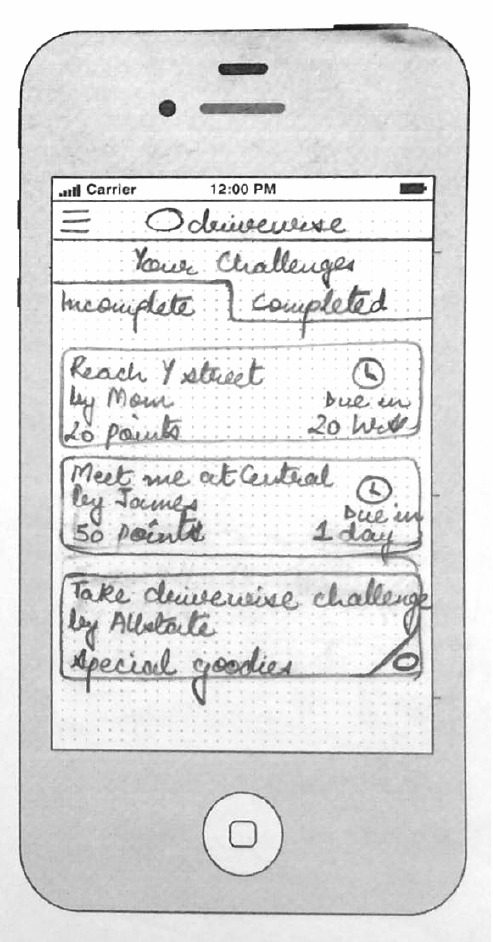 Carrier 12:00 PM
drivewise
Your Challenges
Incomplete Completed
Reach Y street
by Mom
20 points
Due in
20 hrs
Meet me at Central
by James
50 points
Due in
1 day
Take drivewise challenge
by Allstate
special goodies